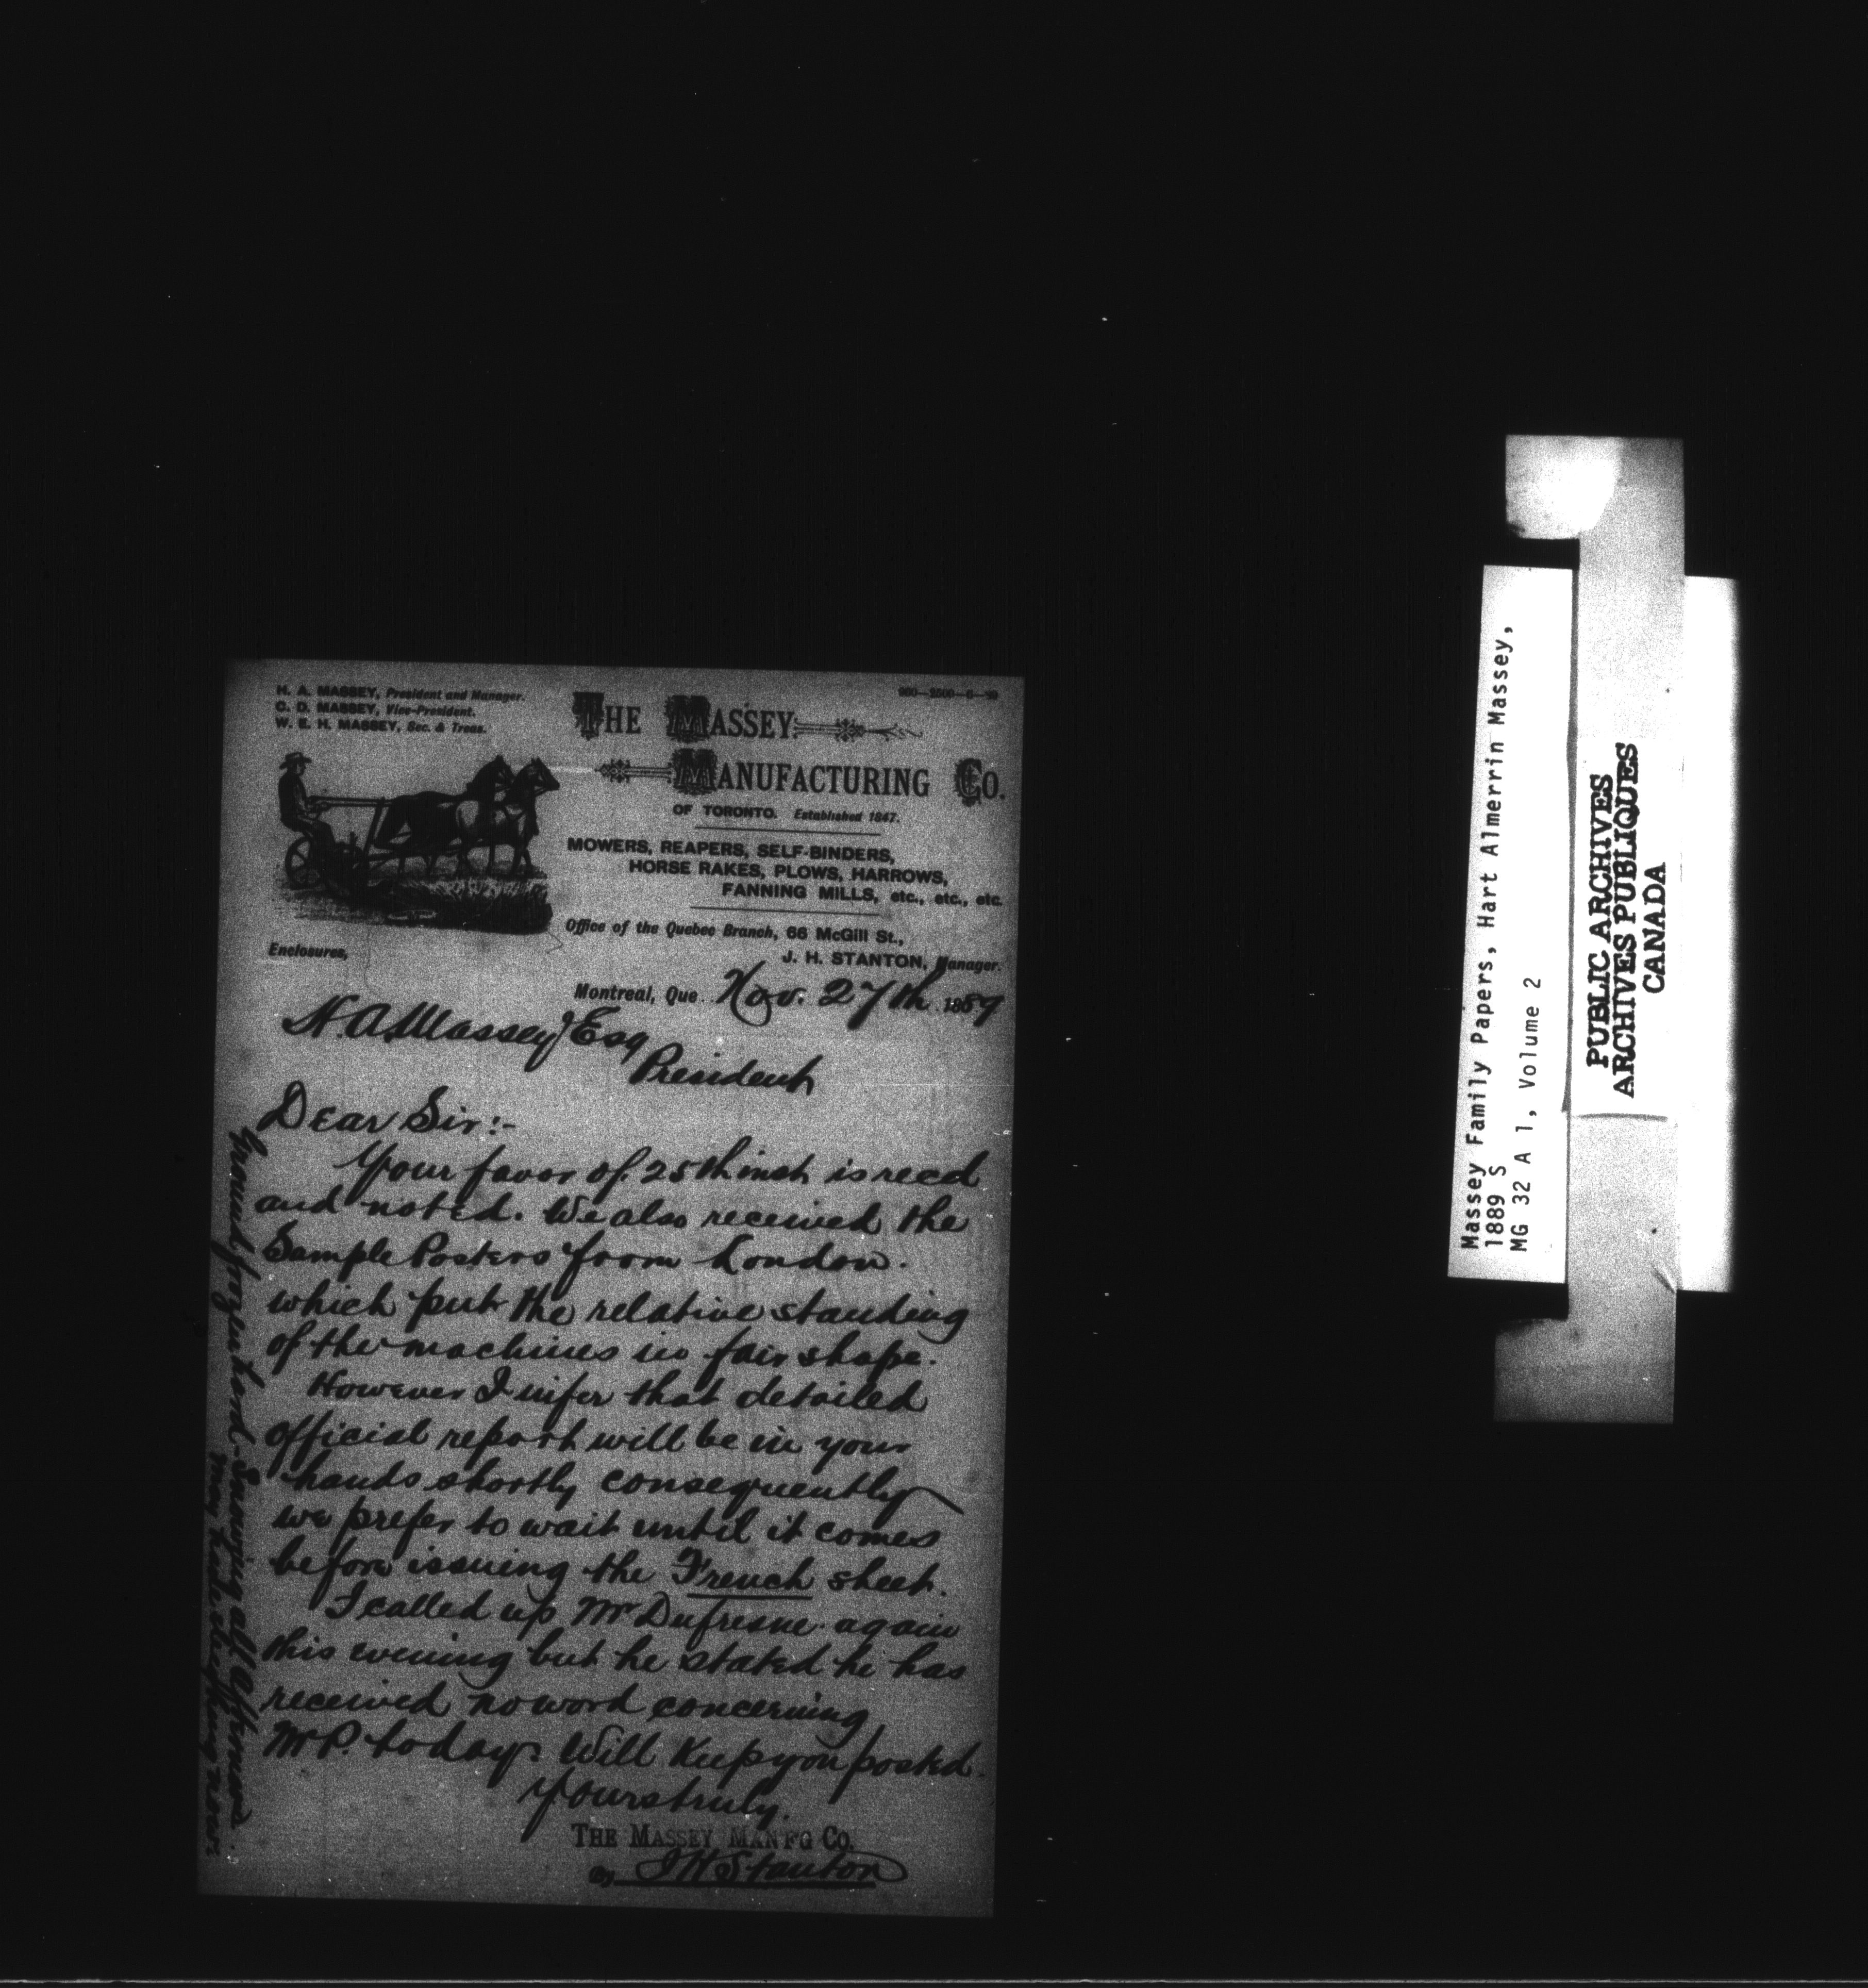 H. A. MASSEY, President and Manager.
C. D. MASSEY, Vice-President.
W. E. H. MASSEY, Sec. & Treas.
THE MASSEY
MANUFACTURING CO.
OF TORONTO. Established 1847.
MOWERS, REAPERS, SELF-BINDERS,
HORSE RAKES, PLOWS, HARROWS,
FANNING MILLS, etc., etc., etc.
Office of the Quebec Branch, 66 McGill St.,
J. H. STANTON, Manager.
Enclosures,
Montreal, Que. Nov. 27th 1889
H. A. Massey Esq
President
Dear Sir:-
Your favor of 25th inst is recd
and noted. We also received the
Sample Posters from London.
which put the relative standing
of the machines in fair shape.
However I infer that detailed
official report will be in your
hands shortly consequently
we prefer to wait until it comes
before issuing the French sheet.
I called up Mr Dufresne again
this evening but he stated he has
received no word concerning
Mr P. today. Will keep you posted.
Yours truly.
THE MASSEY MAN'F'G CO.
By J H Stanton
Massey Family Papers, Hart Almerrin Massey,
1889 S
MG 32 A 1, Volume 2
PUBLIC ARCHIVES
ARCHIVES PUBLIQUES
CANADA